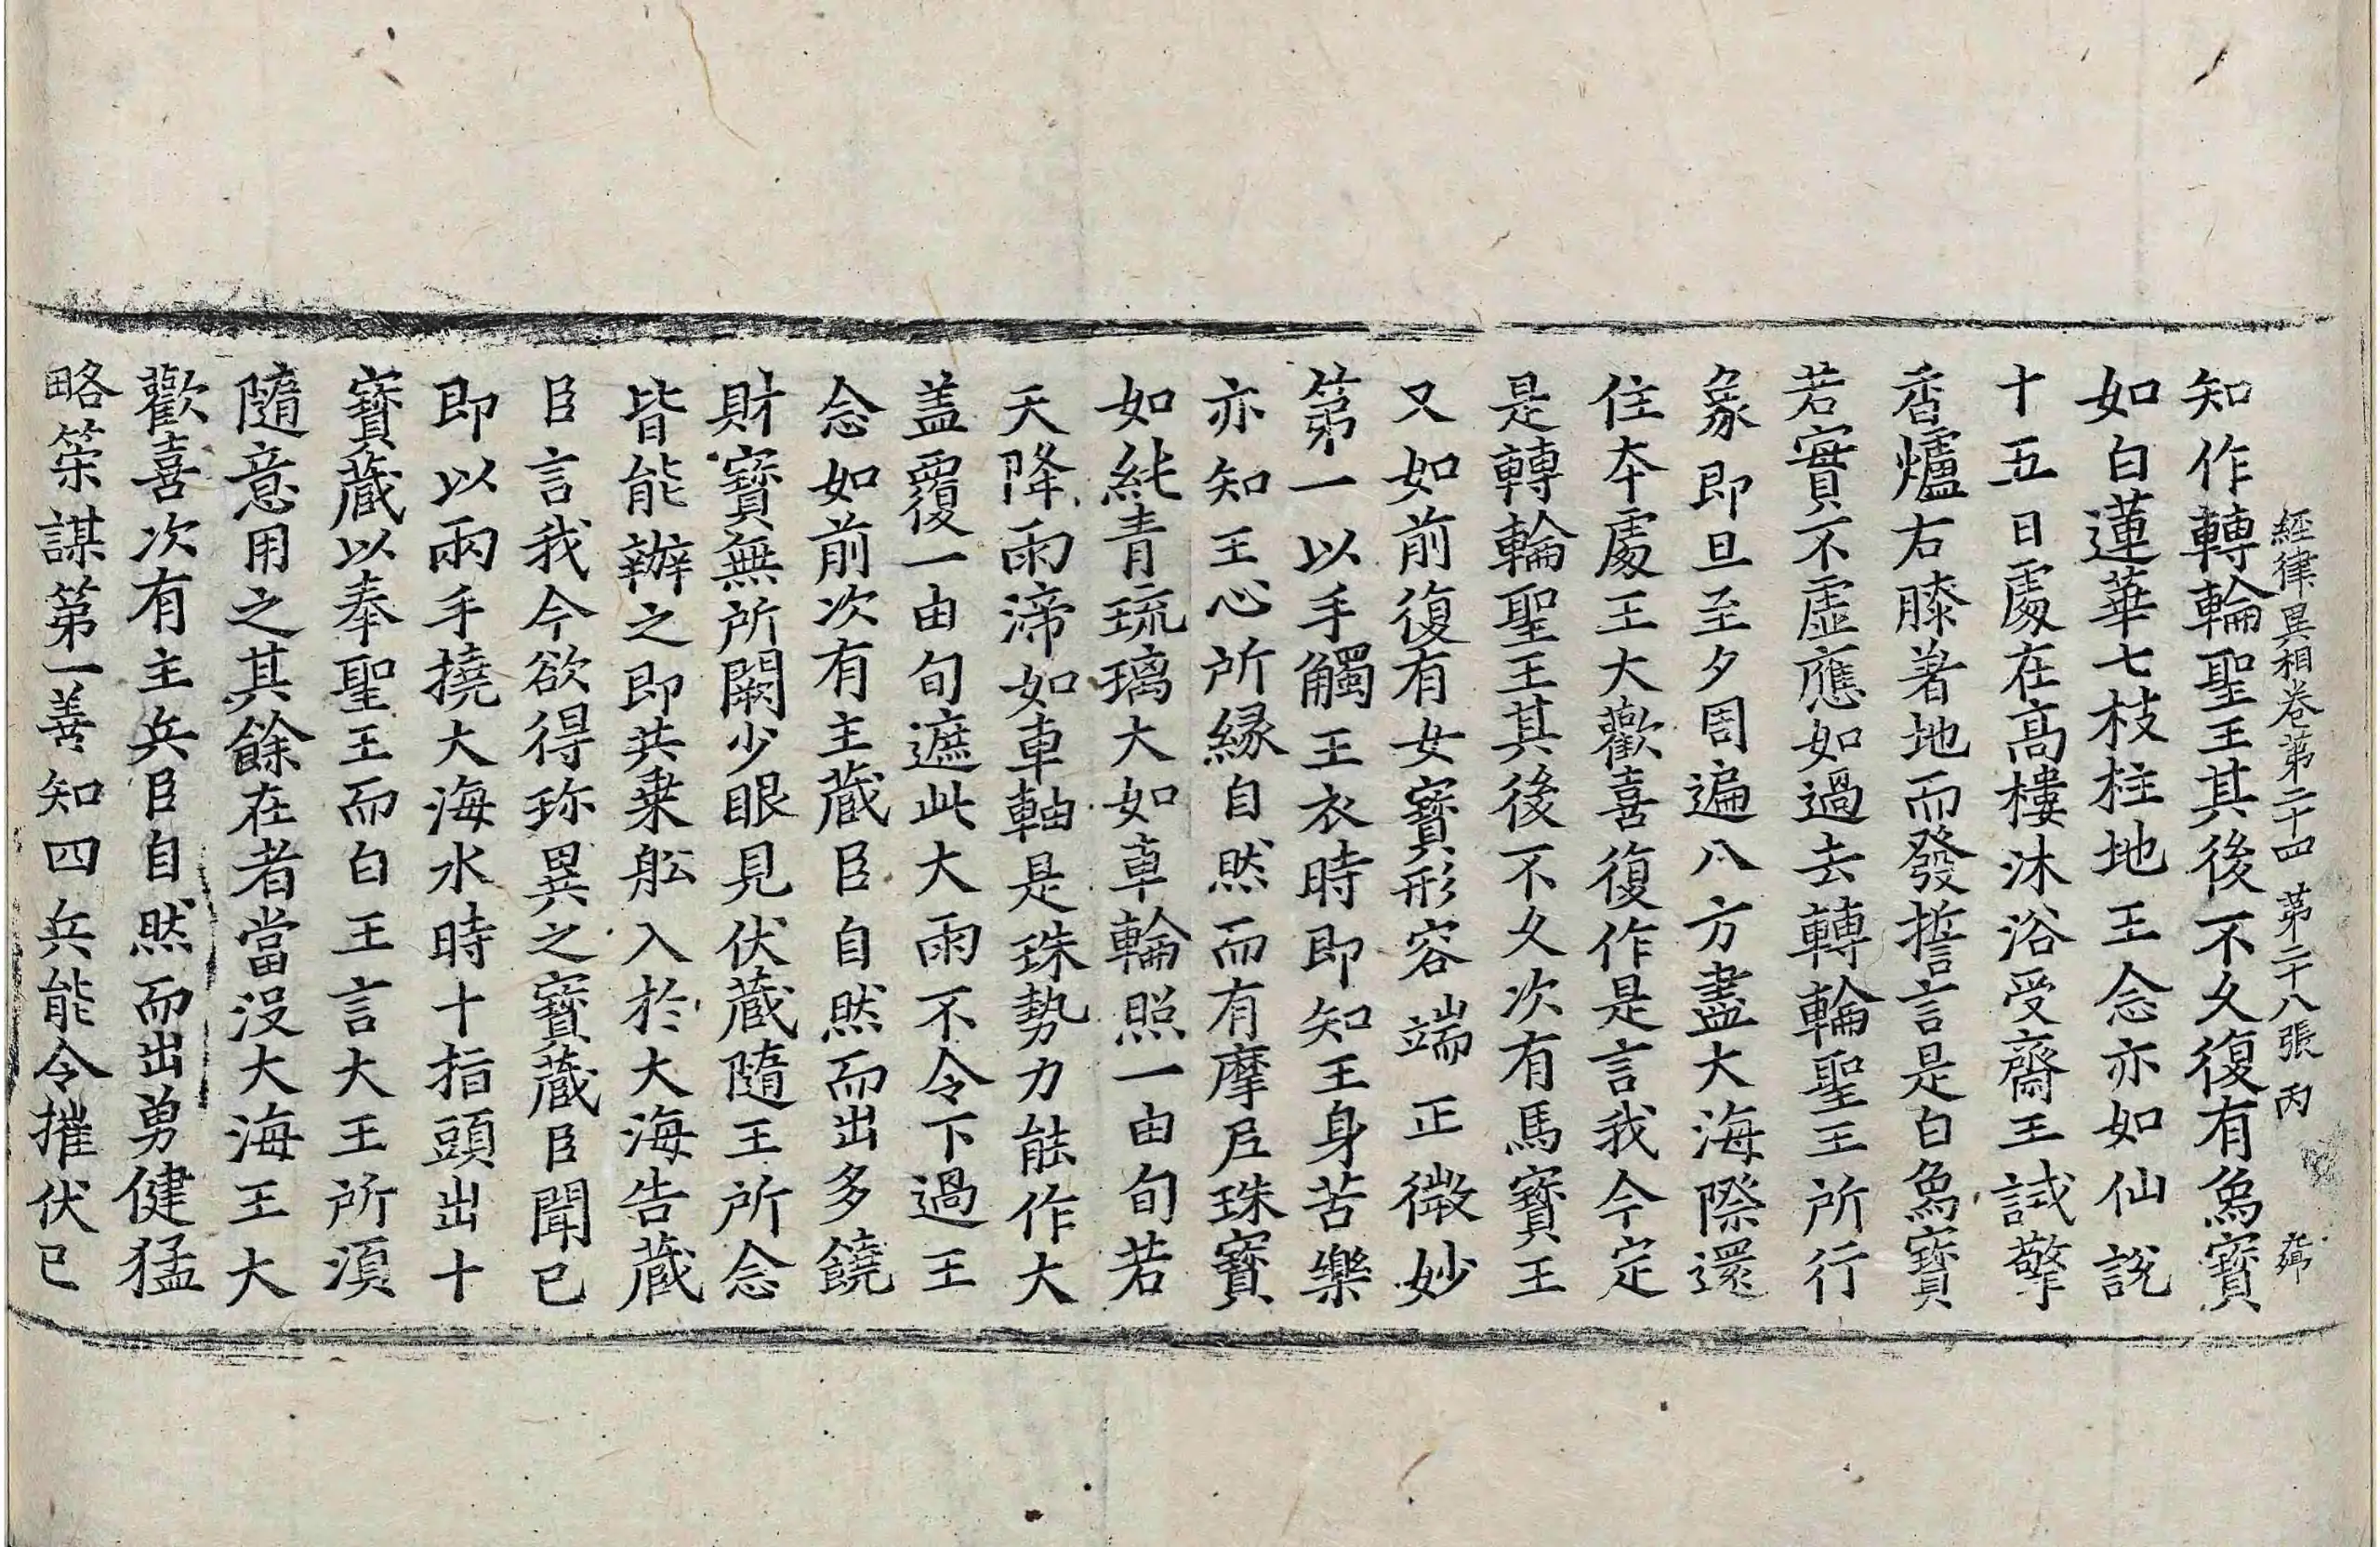 經律異相卷第二十四 第二十八張 丙
知作轉輪聖王其後不久復有象寶
如白蓮華七枝柱地王念亦如仙說
十五日處在高樓沐浴受齋王試擎
香爐右膝著地而發誓言是白象寶
若實不虛應如過去轉輪聖王所行
象即旦至夕周遍八方盡大海際還
住本處王大歡喜復作是言我今定
是轉輪聖王其後不久次有馬寶王
又如前復有女寶形容端正微妙
第一以手觸王衣時即知王身苦樂
亦知王心所緣自然而有摩尼珠寶
如純青琉璃大如車輪照一由旬若
天降雨渧如車軸是珠勢力能作大
盖覆一由旬遮此大雨不令下過王
念如前次有主藏臣自然而出多饒
財寶無所闕少眼見伏藏隨王所念
皆能辦之即共乘舩入於大海告藏
臣言我今欲得珎異之寶藏臣聞已
即以兩手撓大海水時十指頭出十
寶藏以奉聖王而白王言大王所湏
隨意用之其餘在者當沒大海王大
歡喜次有主兵臣自然而出勇健猛
略策謀第一善知四兵能令摧伏已